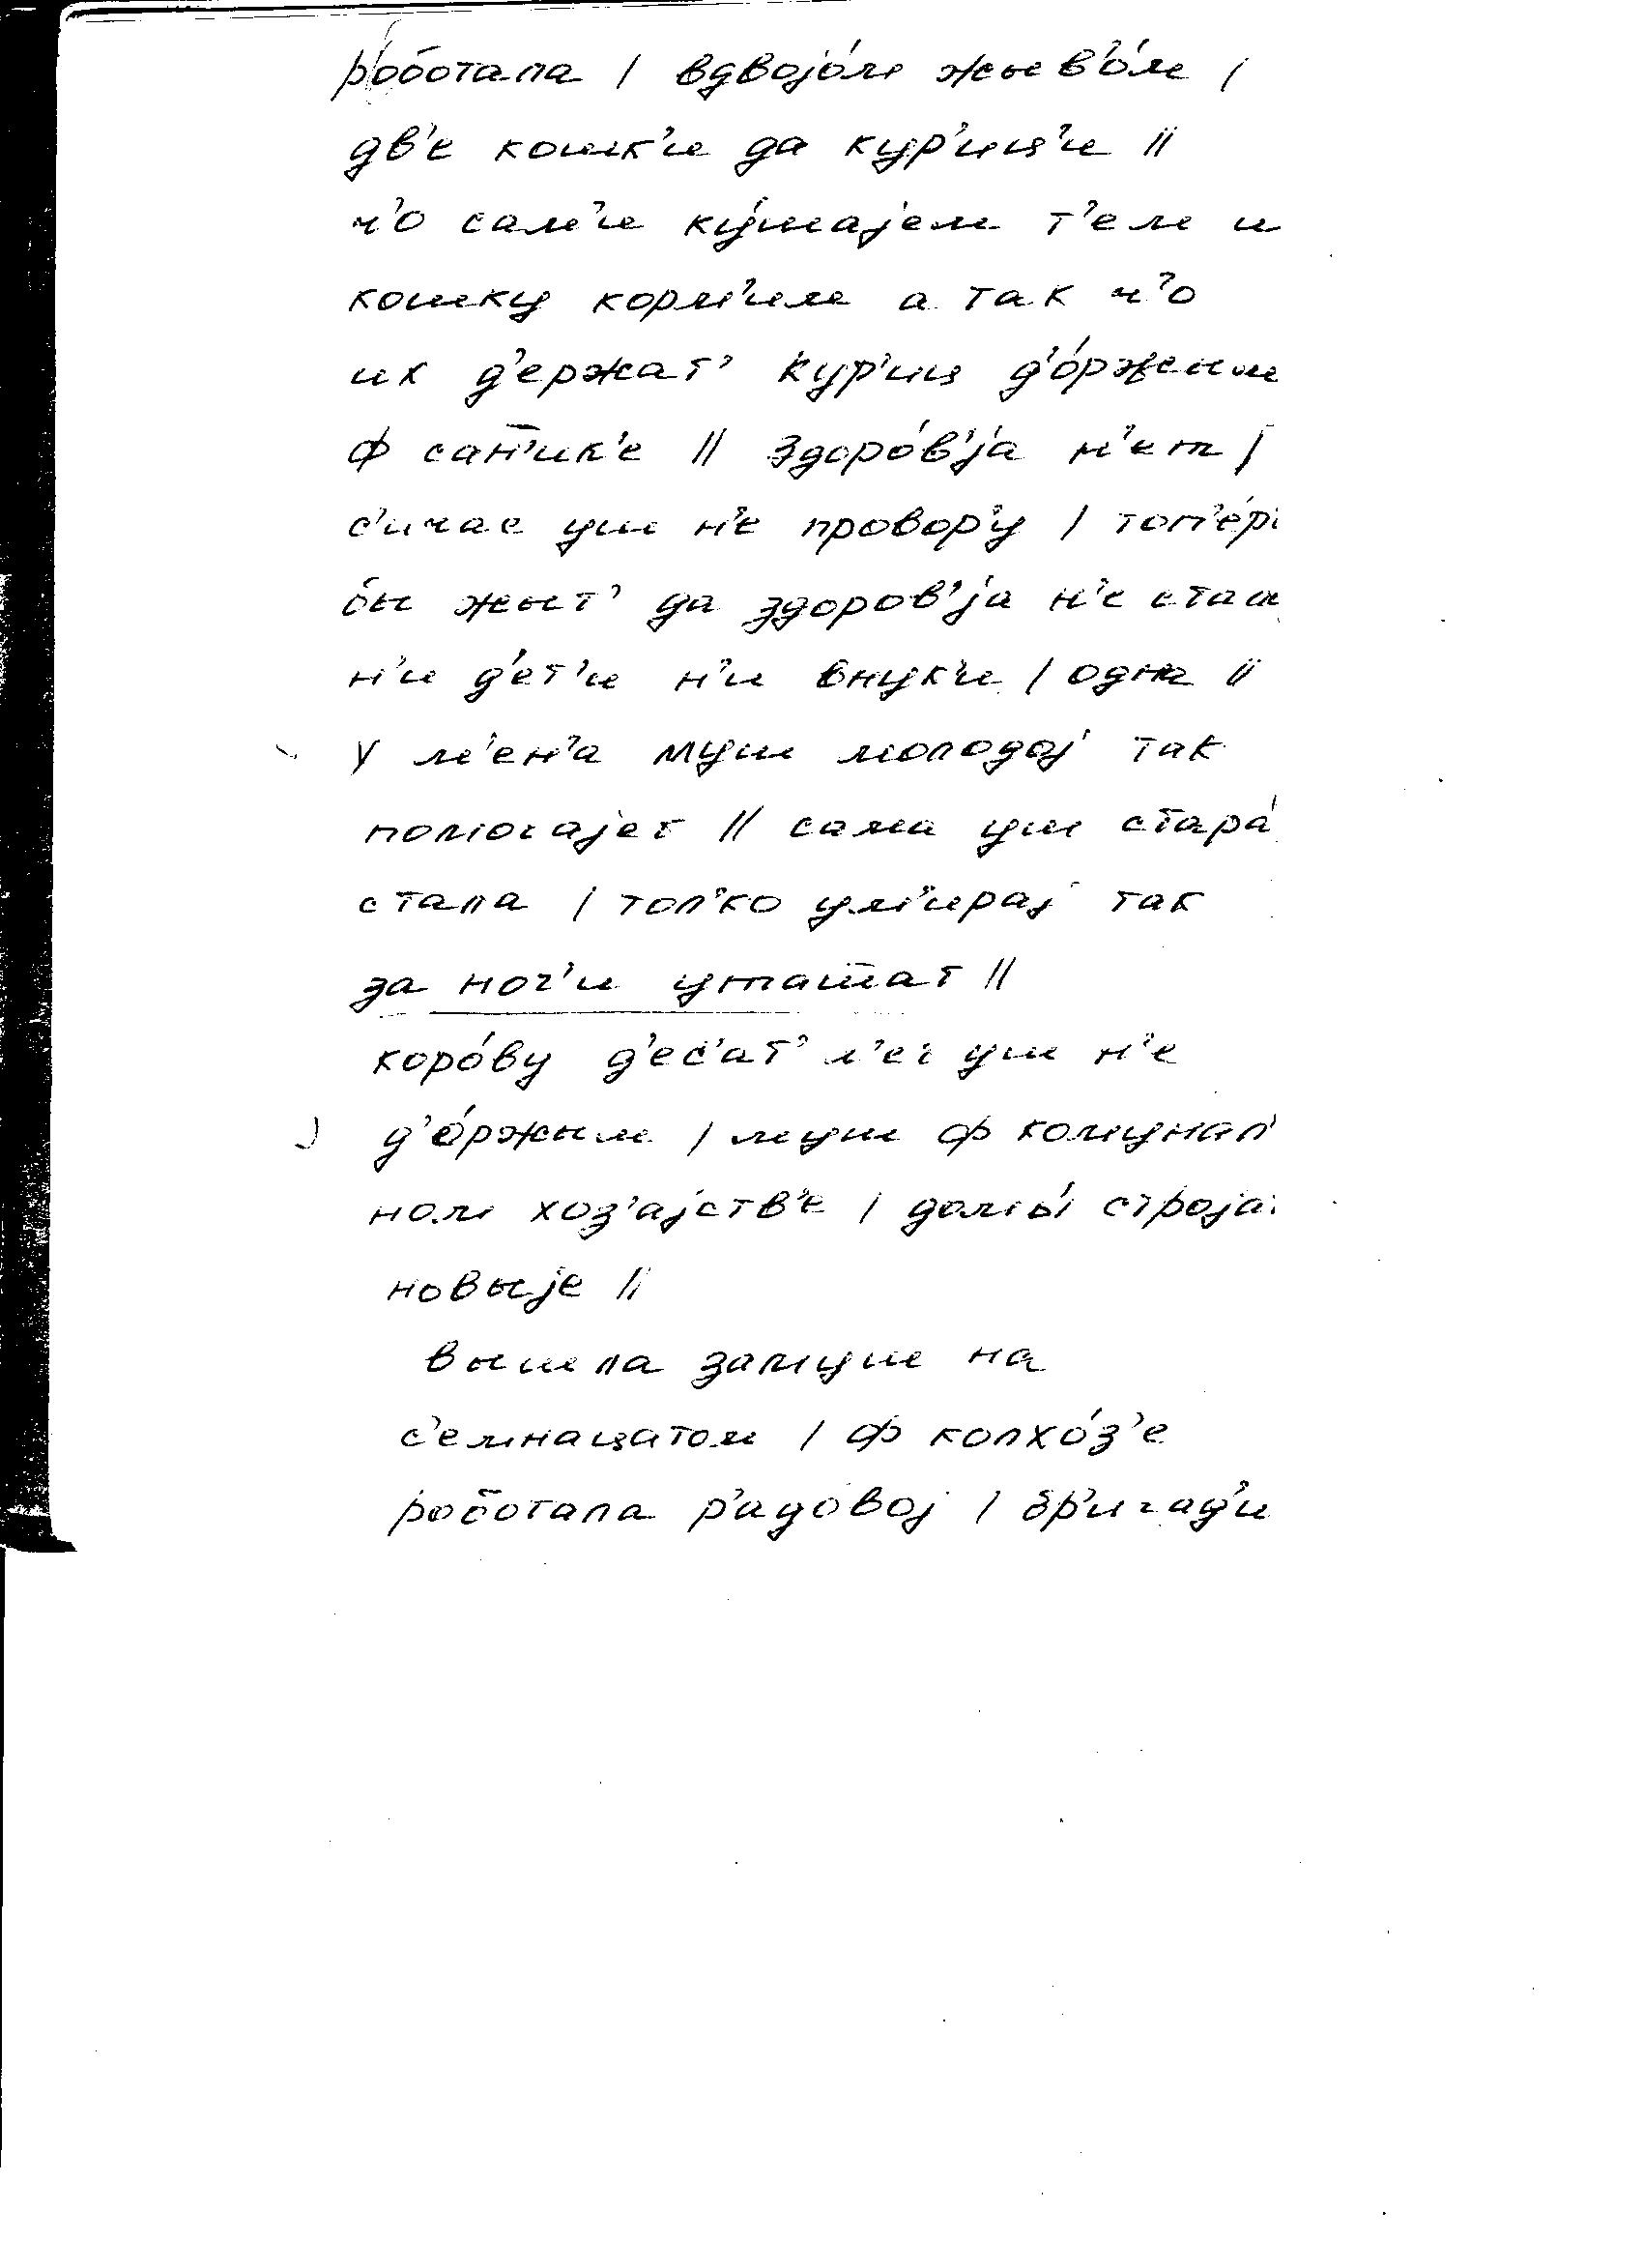 роботала / вдвоjо́м жыв'о́м /
дв'е кошк'и да кур'иц'и //
ч'о сам'и ку́шаjем т'ем и
кошку корм'им а так ч'о
их д'ержат' кур'иц д'о́ржым
ф сан'ик'е // здоро́в'jа н'ет /
с'ичас уш н'е провор'у / топ'е́р'
бы жыт' да здоров'jа н'е стал
н'и д'ет'и н'и внук'и / одна //
у м'ен'а муш молодоj так
помогаjет // сама уш стара́
стала / тол'ко ум'ираj так
за ног'и уташшат //
коро́ву д'ес'ат' л'ет уш н'е
д'о́ржым / муш ф комунал'
ном хоз'аjств'е / домы́ строjа
новыjе //
вышла замуш на
с'емнацатом / ф колхо́з'е
роботала р'адовоj / бр'игад'и